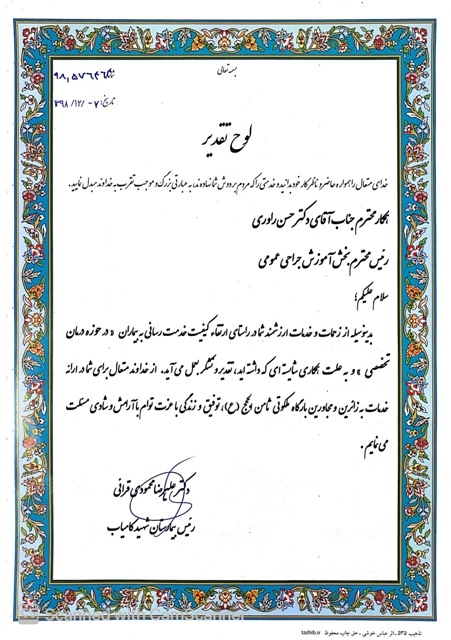 بسمه تعالی
۹۸,۵۷۶۴۶
تاریخ: ۱۳۹۸/۱۲/۰۷
لوح تقدیر
خدای متعال را همواره حاضر و ناظر کار خود بدانید و خدمتی را که مردم بر دوش شما نهاده‌اند، به عبارتی بزرگ و موجب تقرب به خداوند مبدل نمایید.
همکار محترم جناب آقای دکتر حسن راوری
رئیس محترم بخش آموزش جراحی عمومی
سلام علیکم؛
بدینوسیله از زحمات و خدمات ارزشمند شما در راستای ارتقاء کیفیت خدمت رسانی به بیماران « در حوزه درمان
تخصصی » و به علت همکاری شایسته ای که داشته اید، تقدیر و تشکر بعمل می آید. از خداوند متعال برای شما در ارائه
خدمات به زائرین و مجاورین بارگاه ملکوتی ثامن الحجج (ع)، توفیق و زندگی با عزت توام با آرامش و شادی مسئلت
می نمایم.
دکتر علیرضا محمودی قرائی
رئیس بیمارستان شهید کامیاب
CamScanner
تذهیب ۵۳۵ ـ اثر عباس خوشی ـ حق چاپ محفوظ tazhib.ir